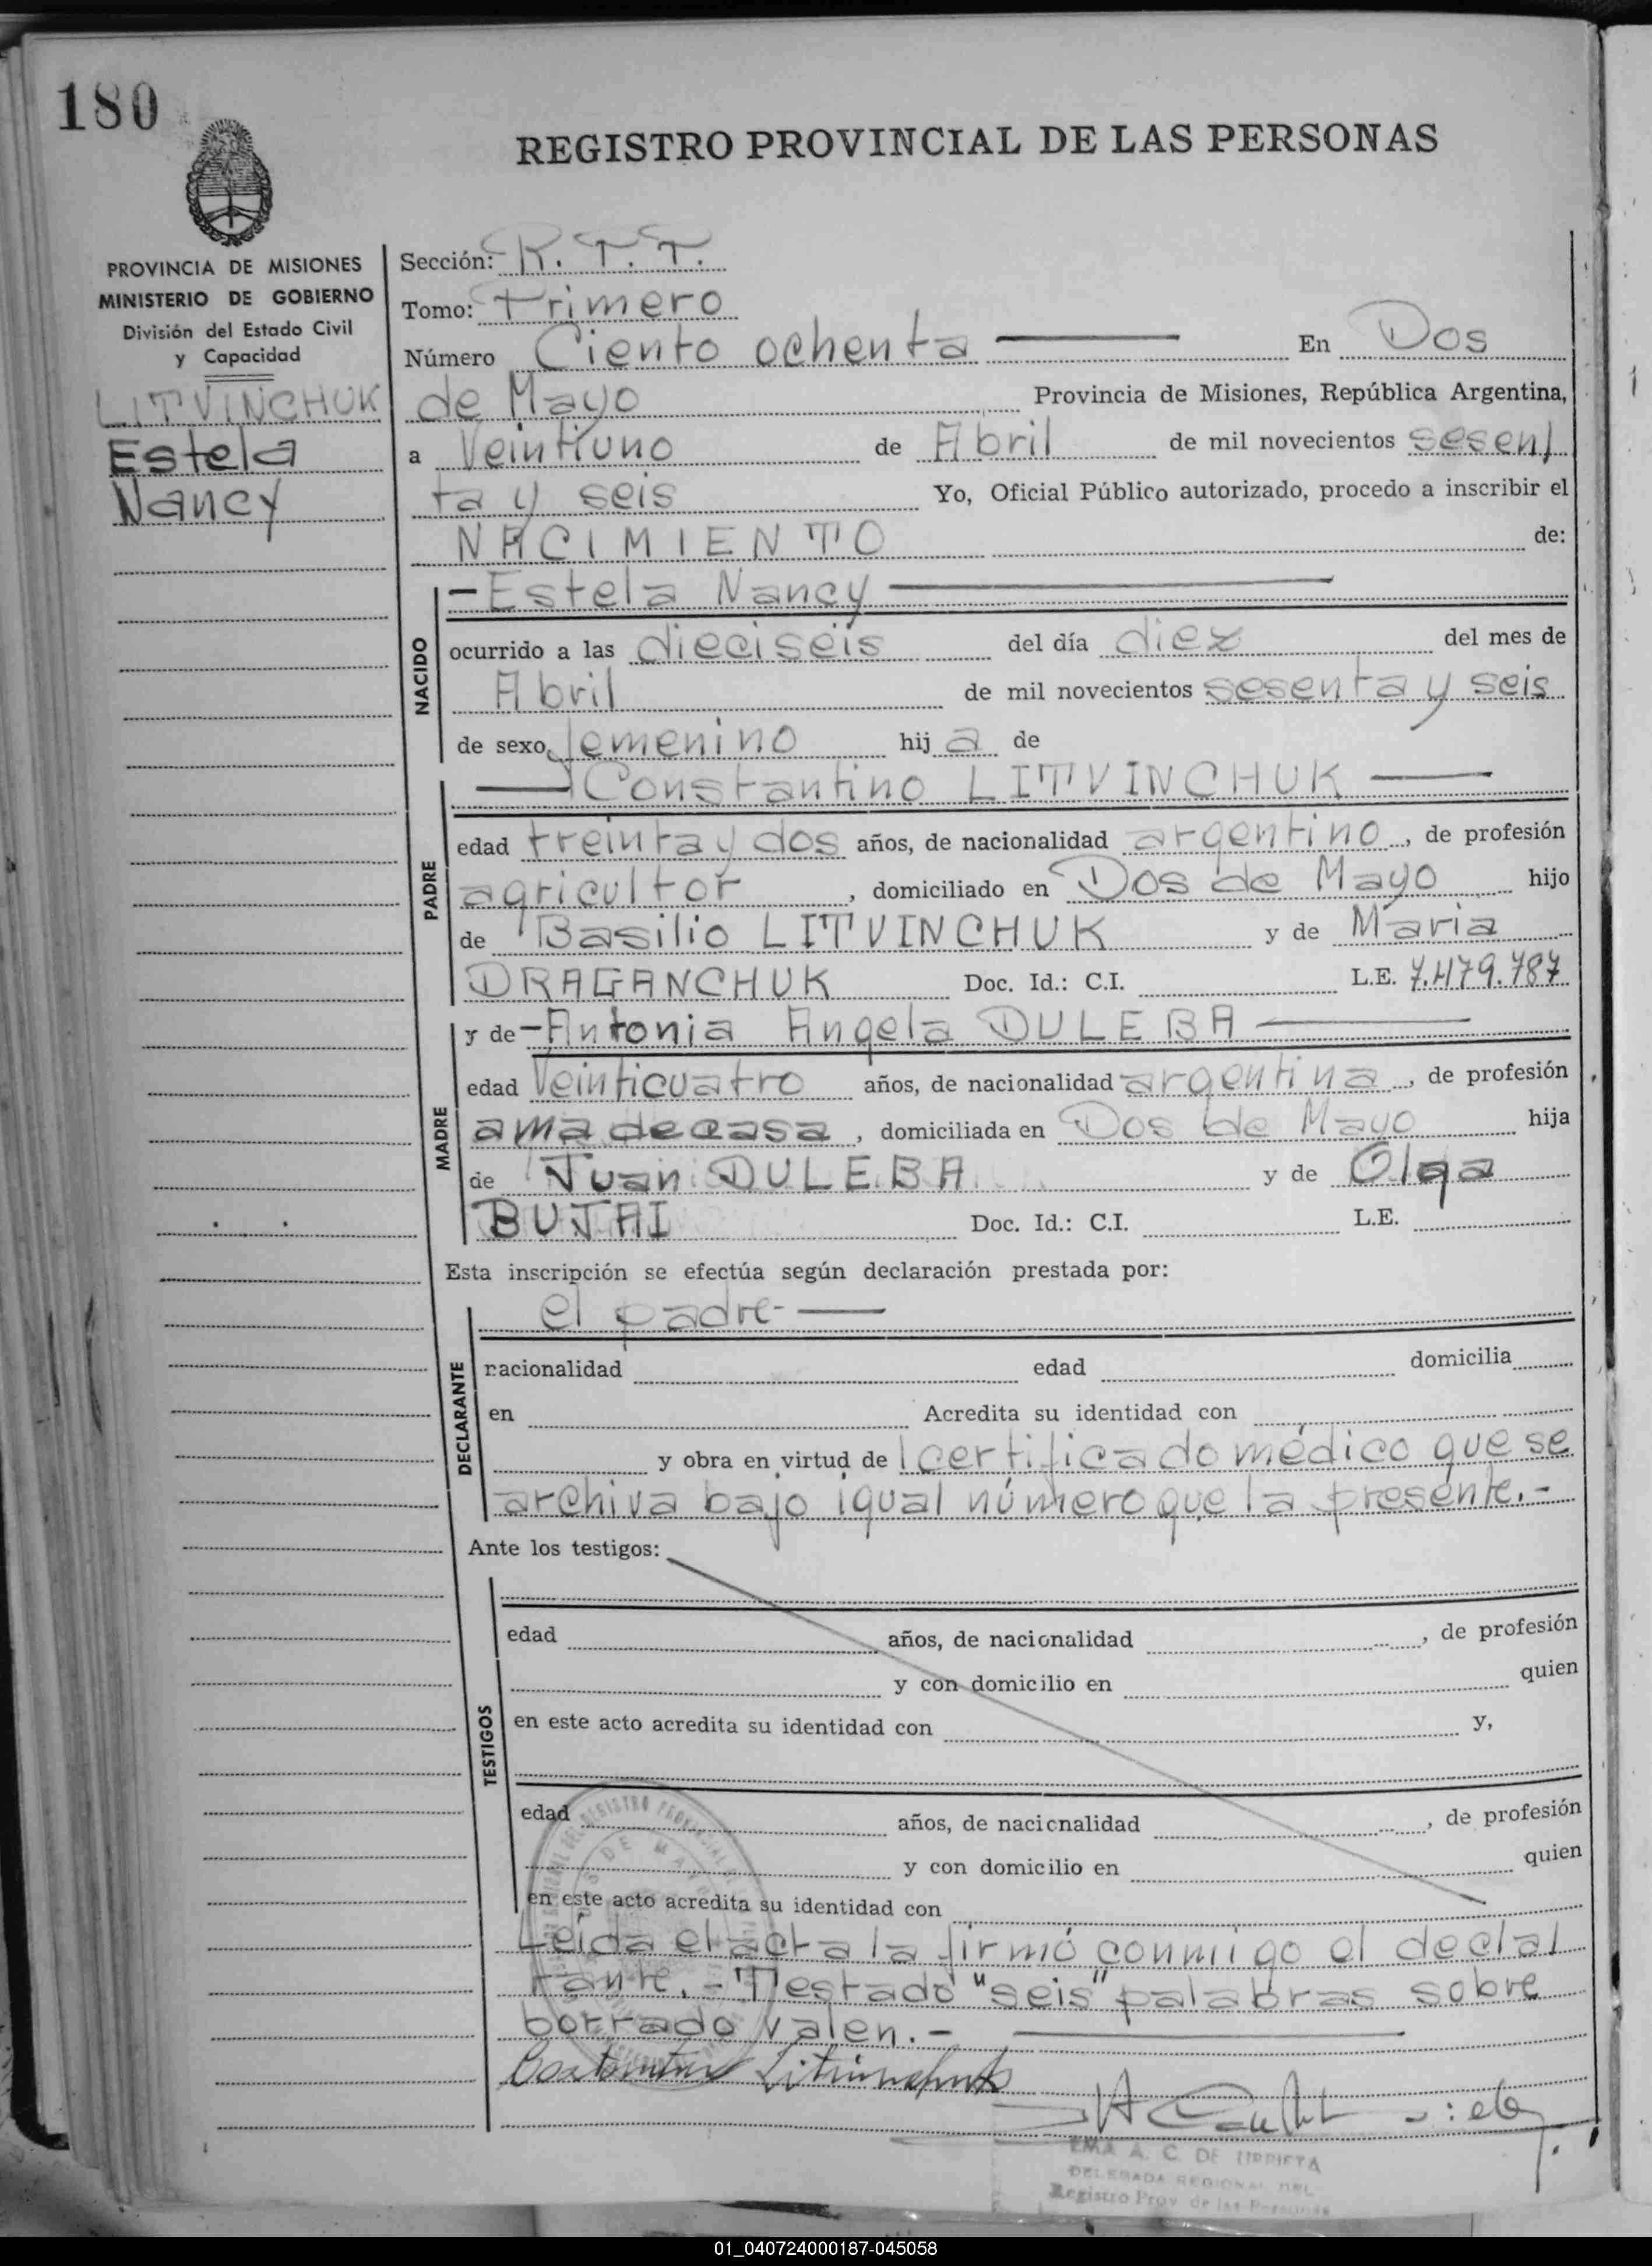 180
REGISTRO PROVINCIAL DE LAS PERSONAS
PROVINCIA DE MISIONES
MINISTERIO DE GOBIERNO
División del Estado Civil
y Capacidad
LITVINCHUK
Estela
Nancy
Sección: R. T. T.
Tomo: Primero
Número Ciento ochenta En Dos
de Mayo Provincia de Misiones, República Argentina,
a Veintiuno de Abril de mil novecientos sesen
ta y seis Yo, Oficial Público autorizado, procedo a inscribir el
NACIMIENTO de:
NACIDO
- Estela Nancy
ocurrido a las dieciseis del día diez del mes de
Abril de mil novecientos sesenta y seis
de sexo femenino hij a de
PADRE
Constantino LITVINCHUK
edad treinta y dos años, de nacionalidad argentino, de profesión
agricultor, domiciliado en Dos de Mayo hijo
de Basilio LITVINCHUK y de Maria
DRAGANCHUK Doc. Id.: C.I. L.E. 7.479.787
MADRE
y de - Antonia Angela DULEBA
edad Veinticuatro años, de nacionalidad argentina, de profesión
ama de casa, domiciliada en Dos de Mayo hija
de Juan DULEBA y de Olga
BUJAI Doc. Id.: C.I. L.E.
Esta inscripción se efectúa según declaración prestada por:
DECLARANTE
el padre-
nacionalidad edad domicilia
en Acredita su identidad con
y obra en virtud de certificado médico que se
archiva bajo igual número que la presente.-
Ante los testigos:
TESTIGOS
edad años, de nacionalidad, de profesión
y con domicilio en quien
en este acto acredita su identidad con y,
edad años, de nacionalidad, de profesión
y con domicilio en quien
en este acto acredita su identidad con
Leída el acta la firmó conmigo el decla
rante.- Testado "seis" palabras sobre
borrado valen.-
Litvinchuk
EMA A. C. DE URRIETA
DELEGADA REGIONAL DEL
Registro Prov. de las Personas
01_040724000187-045058